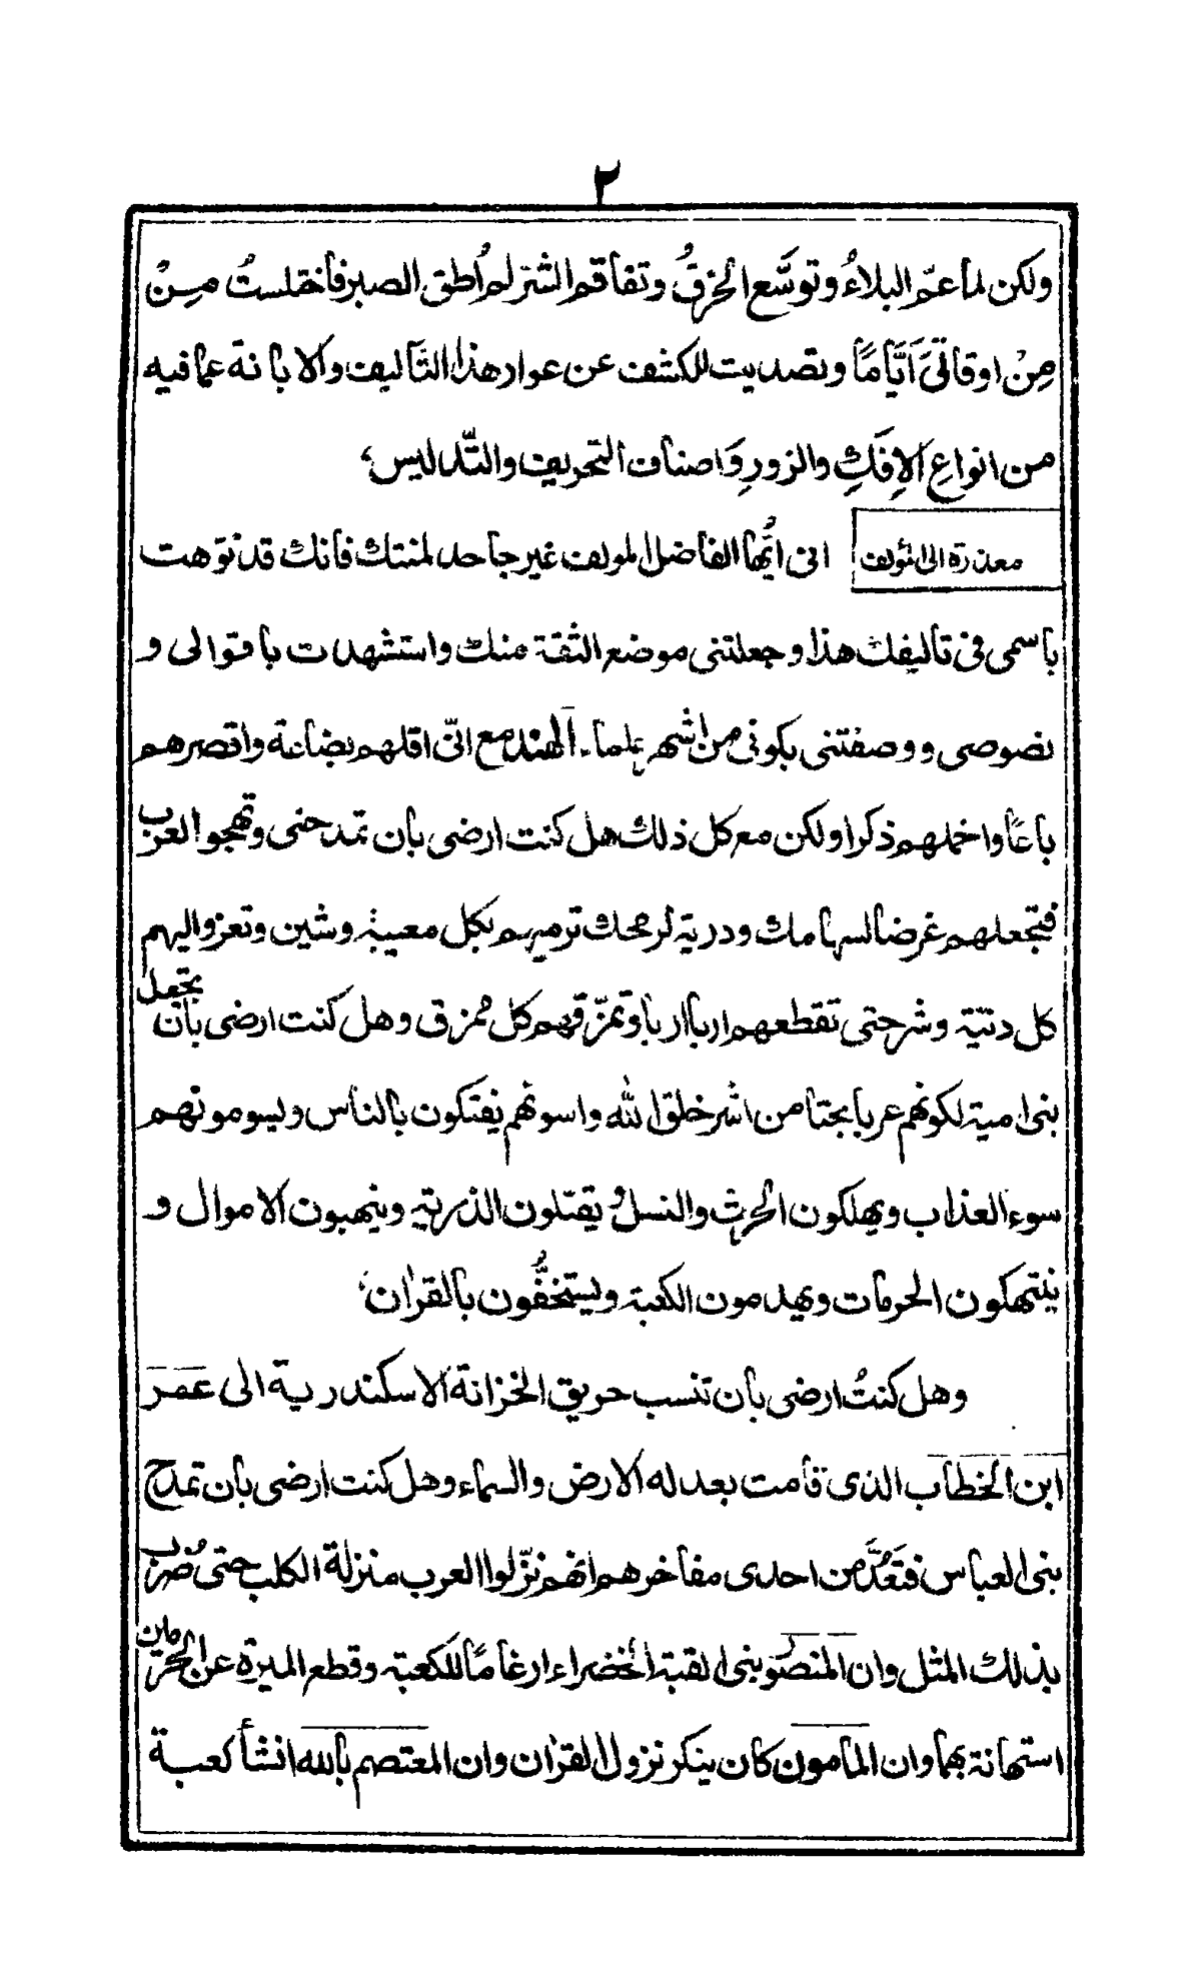 ٢
ولكن لما عمّ البلاءُ وتوسَّع الخرقُ وتفاقم الشر لم اُطق الصبر فاختلستُ مِنْ
مِنْ اوقاتى اَيَّامًا وتصديت للكشف عن عوار هذا التاليف والابانة عما فيه
من انواعِ الاِفكِ والزورِ وَاصناف التحريف والتّدليس؛
معذرة الى المؤلف
انى ايُّها الفاضل المولف غير جاحد لمنتك فانك قد نوّهت
باسمى فى تاليفك هذا وجعلتنى موضع الثقة منك واستشهدت باقوالى و
نصوصى ووصفتنى بكونى من اشهر علماء الهند مع انّى اقلهم بضاعة واقصرهم
باعًا واخملهم ذكرا ولكن مع كل ذلك هل كنت ارضى بان تمدحنى وتهجو العرب
فتجعلهم غرضا لسهامك ودرية لرمحك ترميهم بكل معيبة وشين وتعزو اليهم
كل دنية وشر حتى تقطعهم اربا اربا وتمزّقهم كل مُمزق وهل كنت ارضى بان تجعل
بنى امية لكونهم عربا بحتا من اشر خلق الله واسوئهم يفتكون بالناس ويسومونهم
سوء العذاب ويهلكون الحرث والنسل ويقتلون الذرية وينهبون الاموال و
ينتهكون الحرمات ويهدمون الكعبة ويستخفُّون بالقراٰن؛
وهل كنتُ ارضى بان تنسب حريق الخزانة الاسكندرية الى عمر
ابن الخطاب الذى قامت بعدله الارض والسماء وهل كنت ارضى بان تمدح
بنى العباس فتَعُدَّ من احدى مفاخرهم انهم نزّلوا العرب منزلة الكلب حتى ضُرب
بذلك المثل وان المنصور بنى القبة الخضراء ارغامًا للكعبة وقطع الميرة عن الحرمين
استهانة بهما وان المامون كان ينكر نزول القراٰن وان المعتصم بالله انشأ كعبة